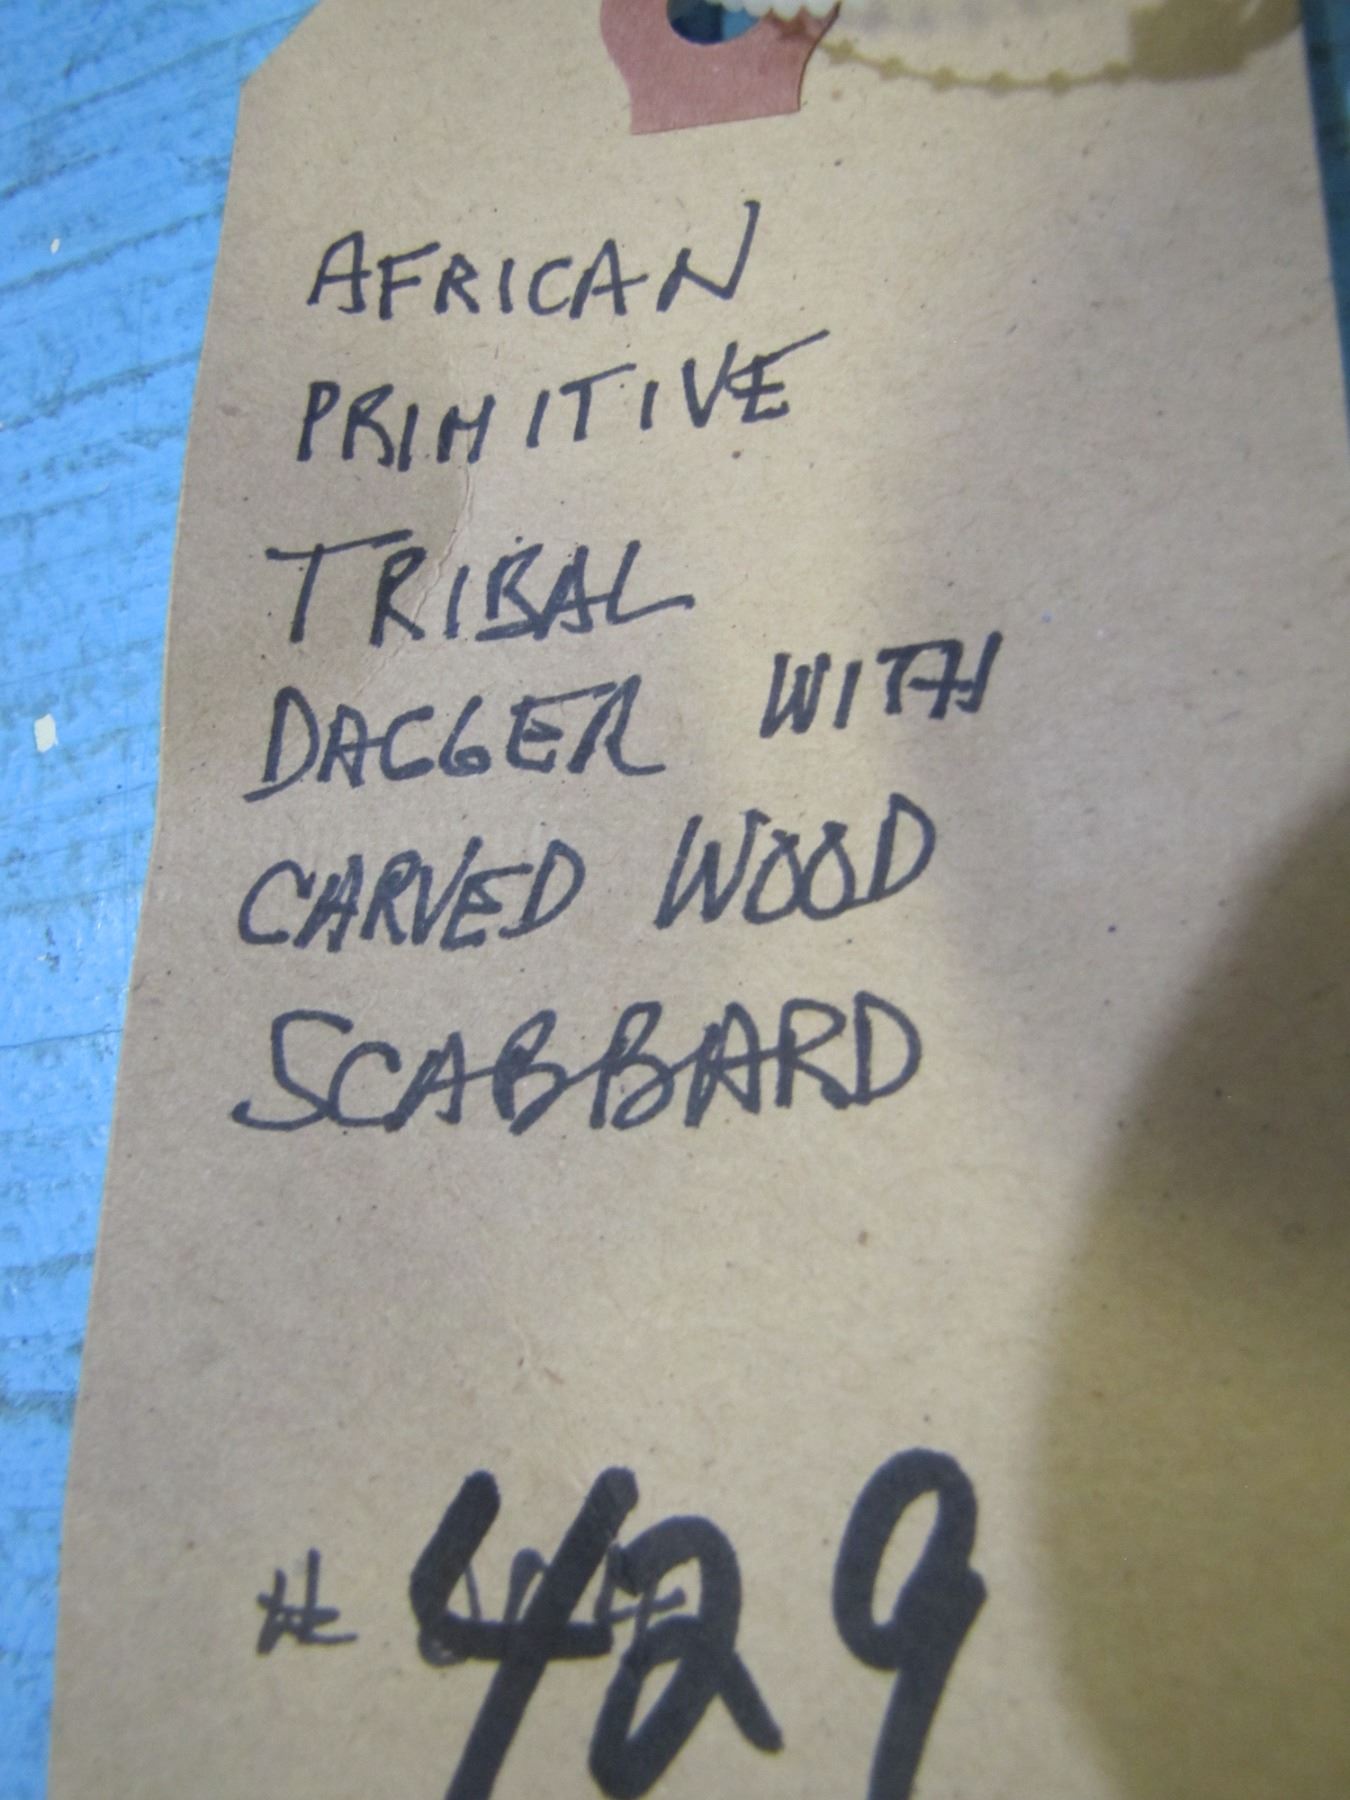 AFRICAN
PRIMITIVE
TRIBAL
DAGGER WITH
CARVED WOOD
SCABBARD
# 429